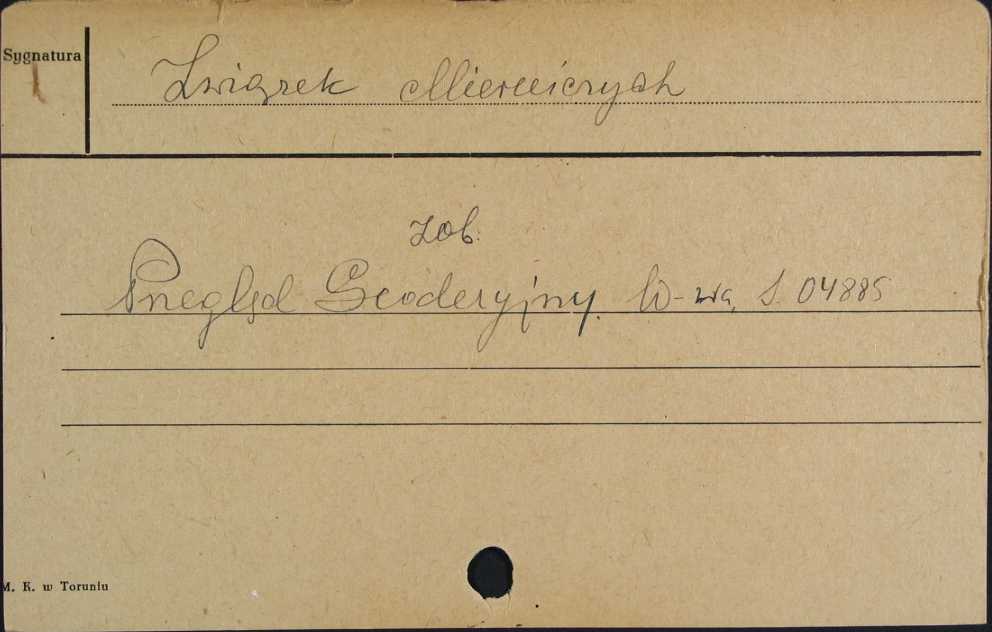 Sygnatura
Związek Mierniczych
zob.
Przegląd Geodezyjny. W-wa, S. 04885
M. K. w Toruniu